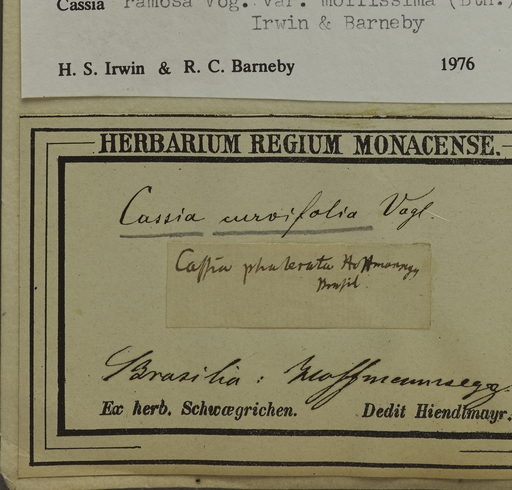 Cassia ramosa Vog. var. mollissima (Bth.)
Irwin & Barneby
H. S. Irwin & R. C. Barneby 1976
HERBARIUM REGIUM MONACENSE.
Cassia curvifolia Vogl.
Cassia phalerata Hoffmannsgg
Brasil.
Brasilia: Hoffmannsegg.
Ex herb. Schwægrichen. Dedit Hiendlmayr.